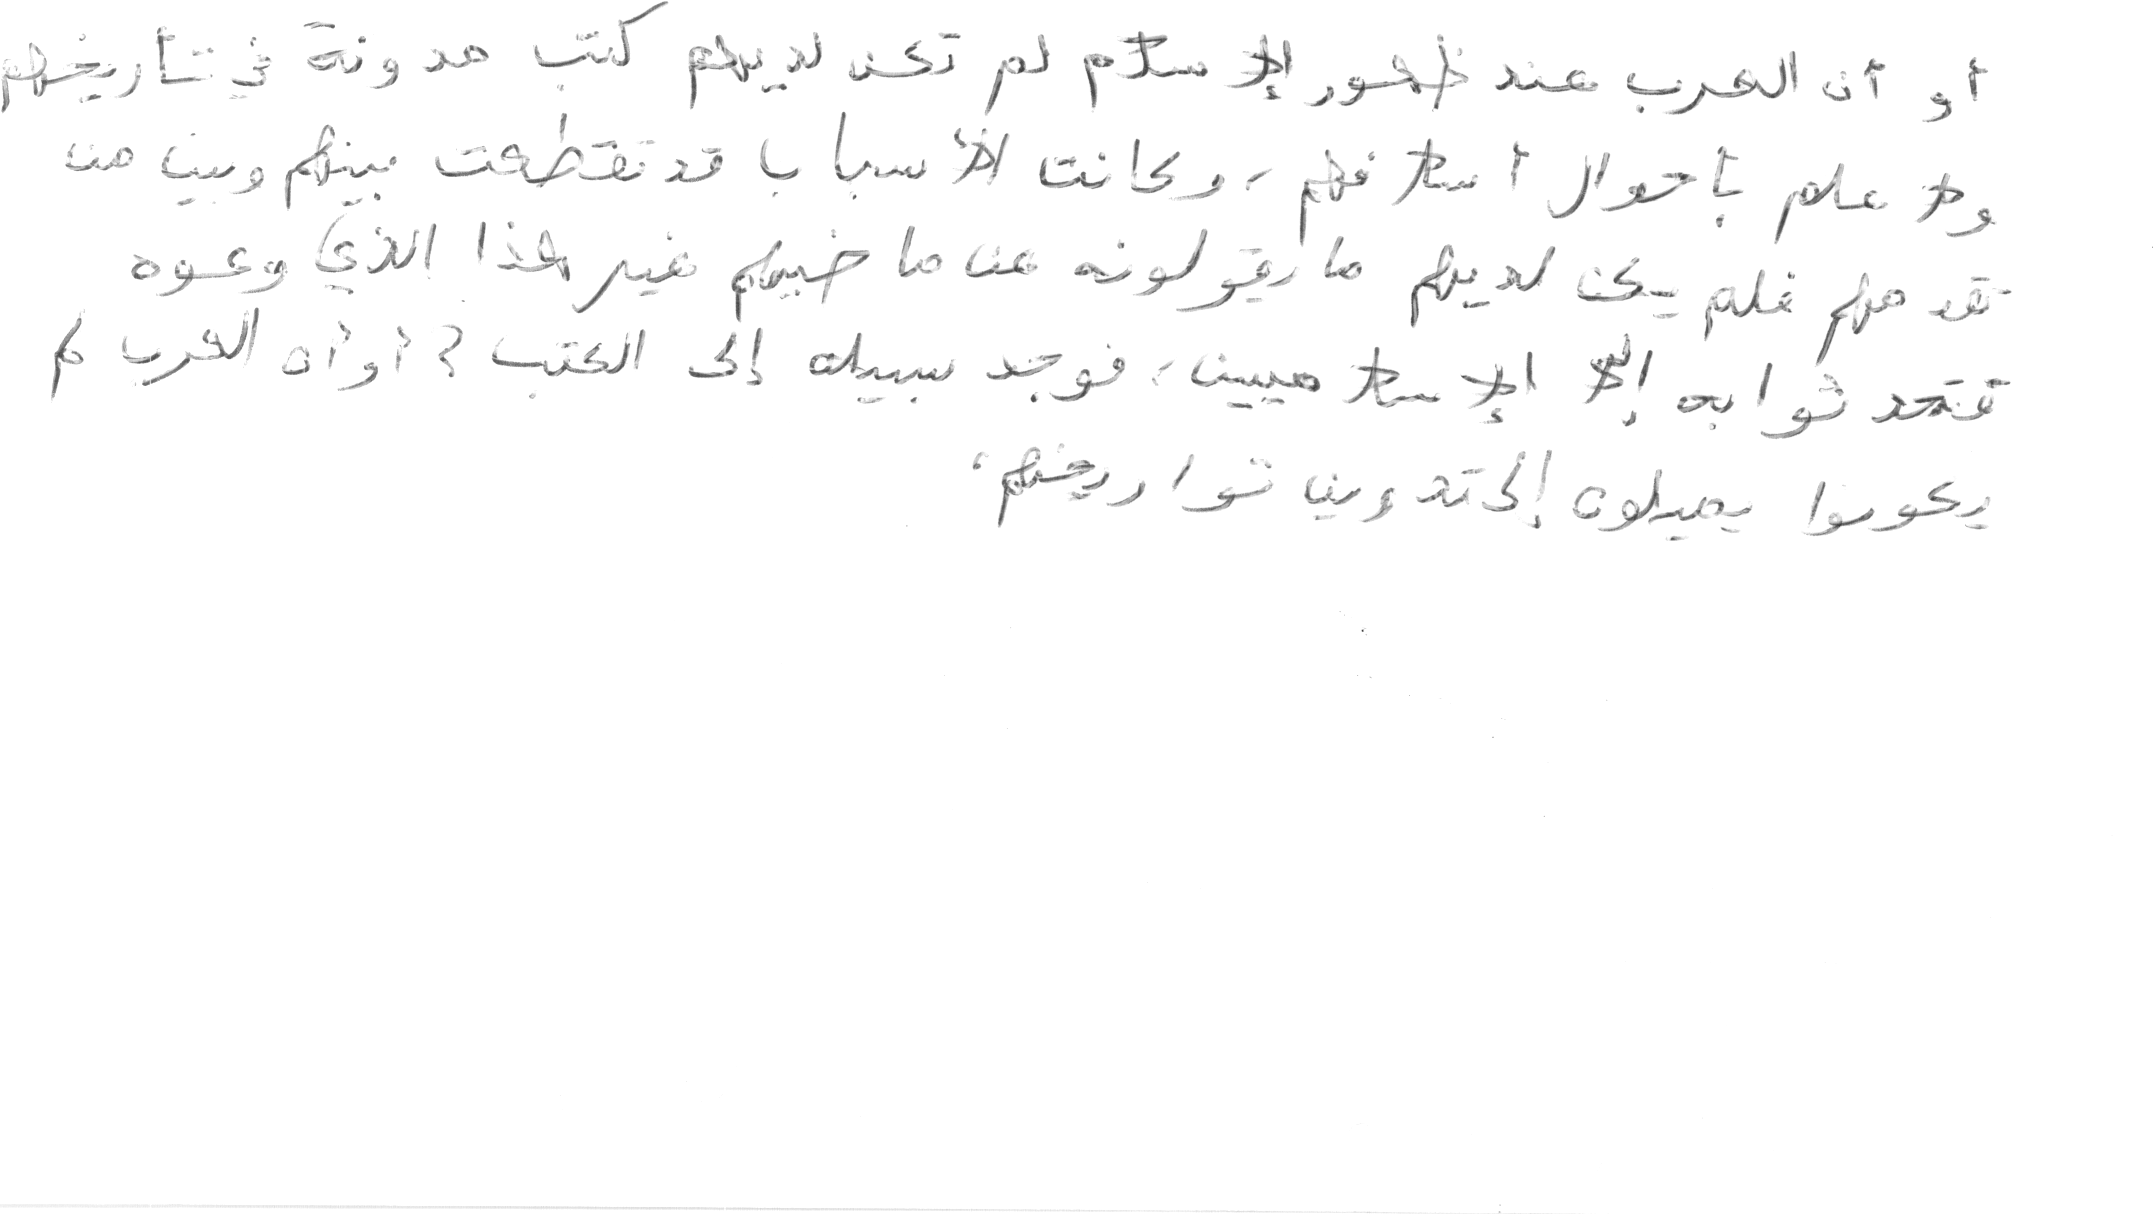 أو أن العرب عند ظهور الإسلام لم تكن لديهم كتب مدونة في تأريخهم
ولا علم بأحوال أسلافهم، وكانت الأسباب قد تقطعت بينهم وبين من
تقدمهم فلم يكن لديهم ما يقولونه عن ماضيهم غير هذا الذي وعوه
فتحدثوا به إلى الإسلاميين، فوجد سبيله إلى الكتب؟ أو أن العرب لم
يكونوا يميلون إلى تدوين تواريخهم،